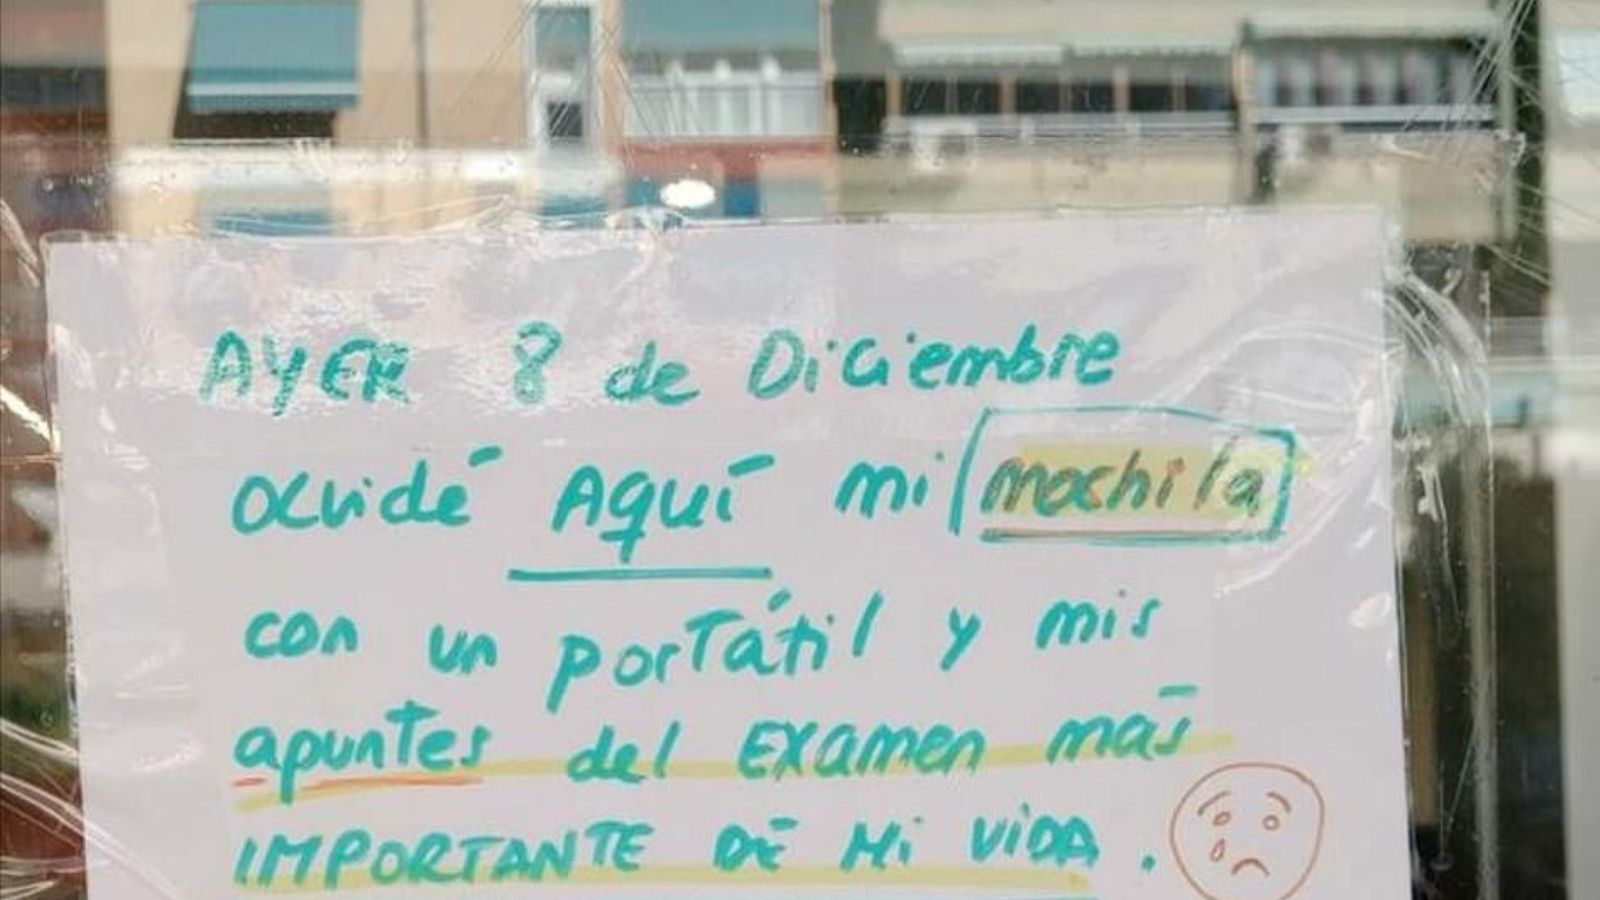 AYER 8 de Diciembre
olvidé AQUÍ mi mochila
con un portátil y mis
apuntes del EXAMEN más
IMPORTANTE DE Mi ViDA.